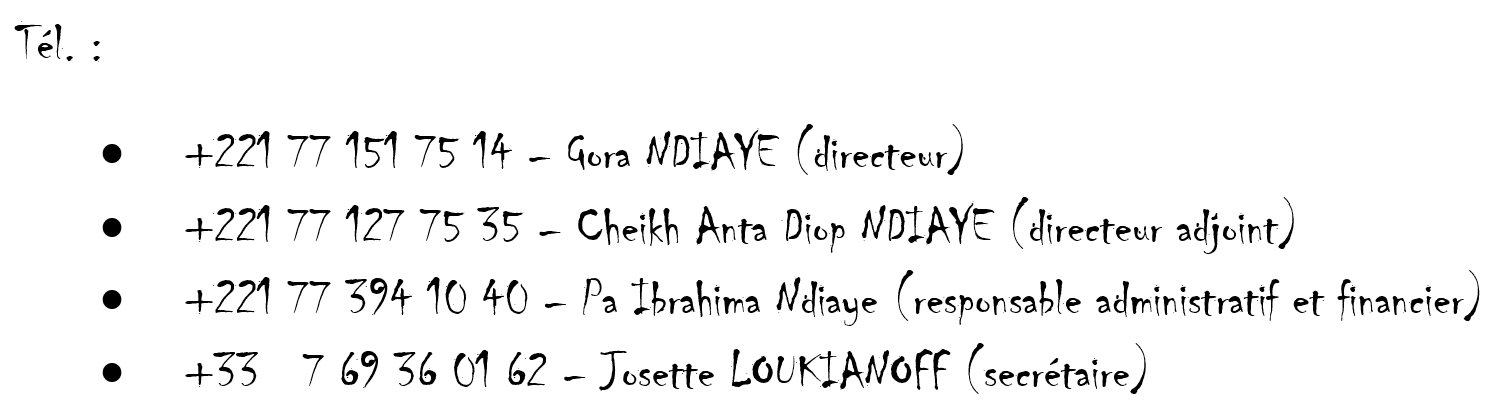 Tél. :
• +221 77 151 75 14 – Gora NDIAYE (directeur)
• +221 77 127 75 35 – Cheikh Anta Diop NDIAYE (directeur adjoint)
• +221 77 394 10 40 – Pa Ibrahima Ndiaye (responsable administratif et financier)
• +33 7 69 36 01 62 – Josette LOUKIANOFF (secrétaire)